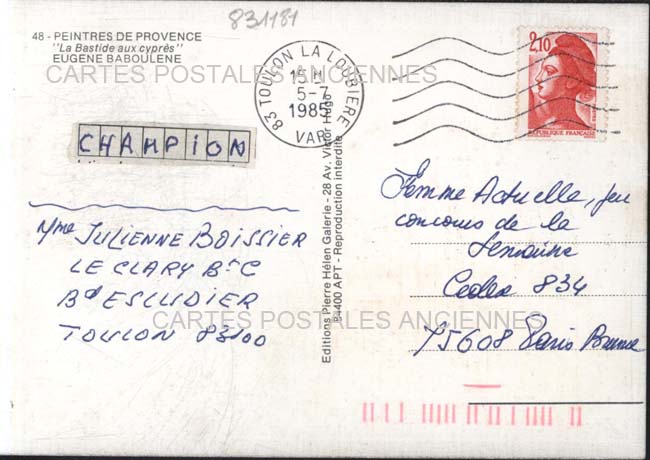 831181
48 - PEINTRES DE PROVENCE
"La Bastide aux cyprès"
EUGENE BABOULENE
CARTES POSTALES ANCIENNES
83 TOULON LA LOUBIERE
15 H
5-7
1985
VAR
2,10
REPUBLIQUE FRANÇAISE
CHAMPION
Mme JULIENNE BOISSIER
LE CLARY Bt C
Bd ESCUDIER
TOULON 83100
Editions Pierre Hélen Galerie - 28 Av. Victor Hugo
84400 APT - Reproduction interdite
Femme Actuelle, jeu
concours de la
Semaine
Cedex 834
75608 Paris Brune
CARTES POSTALES ANCIENNES